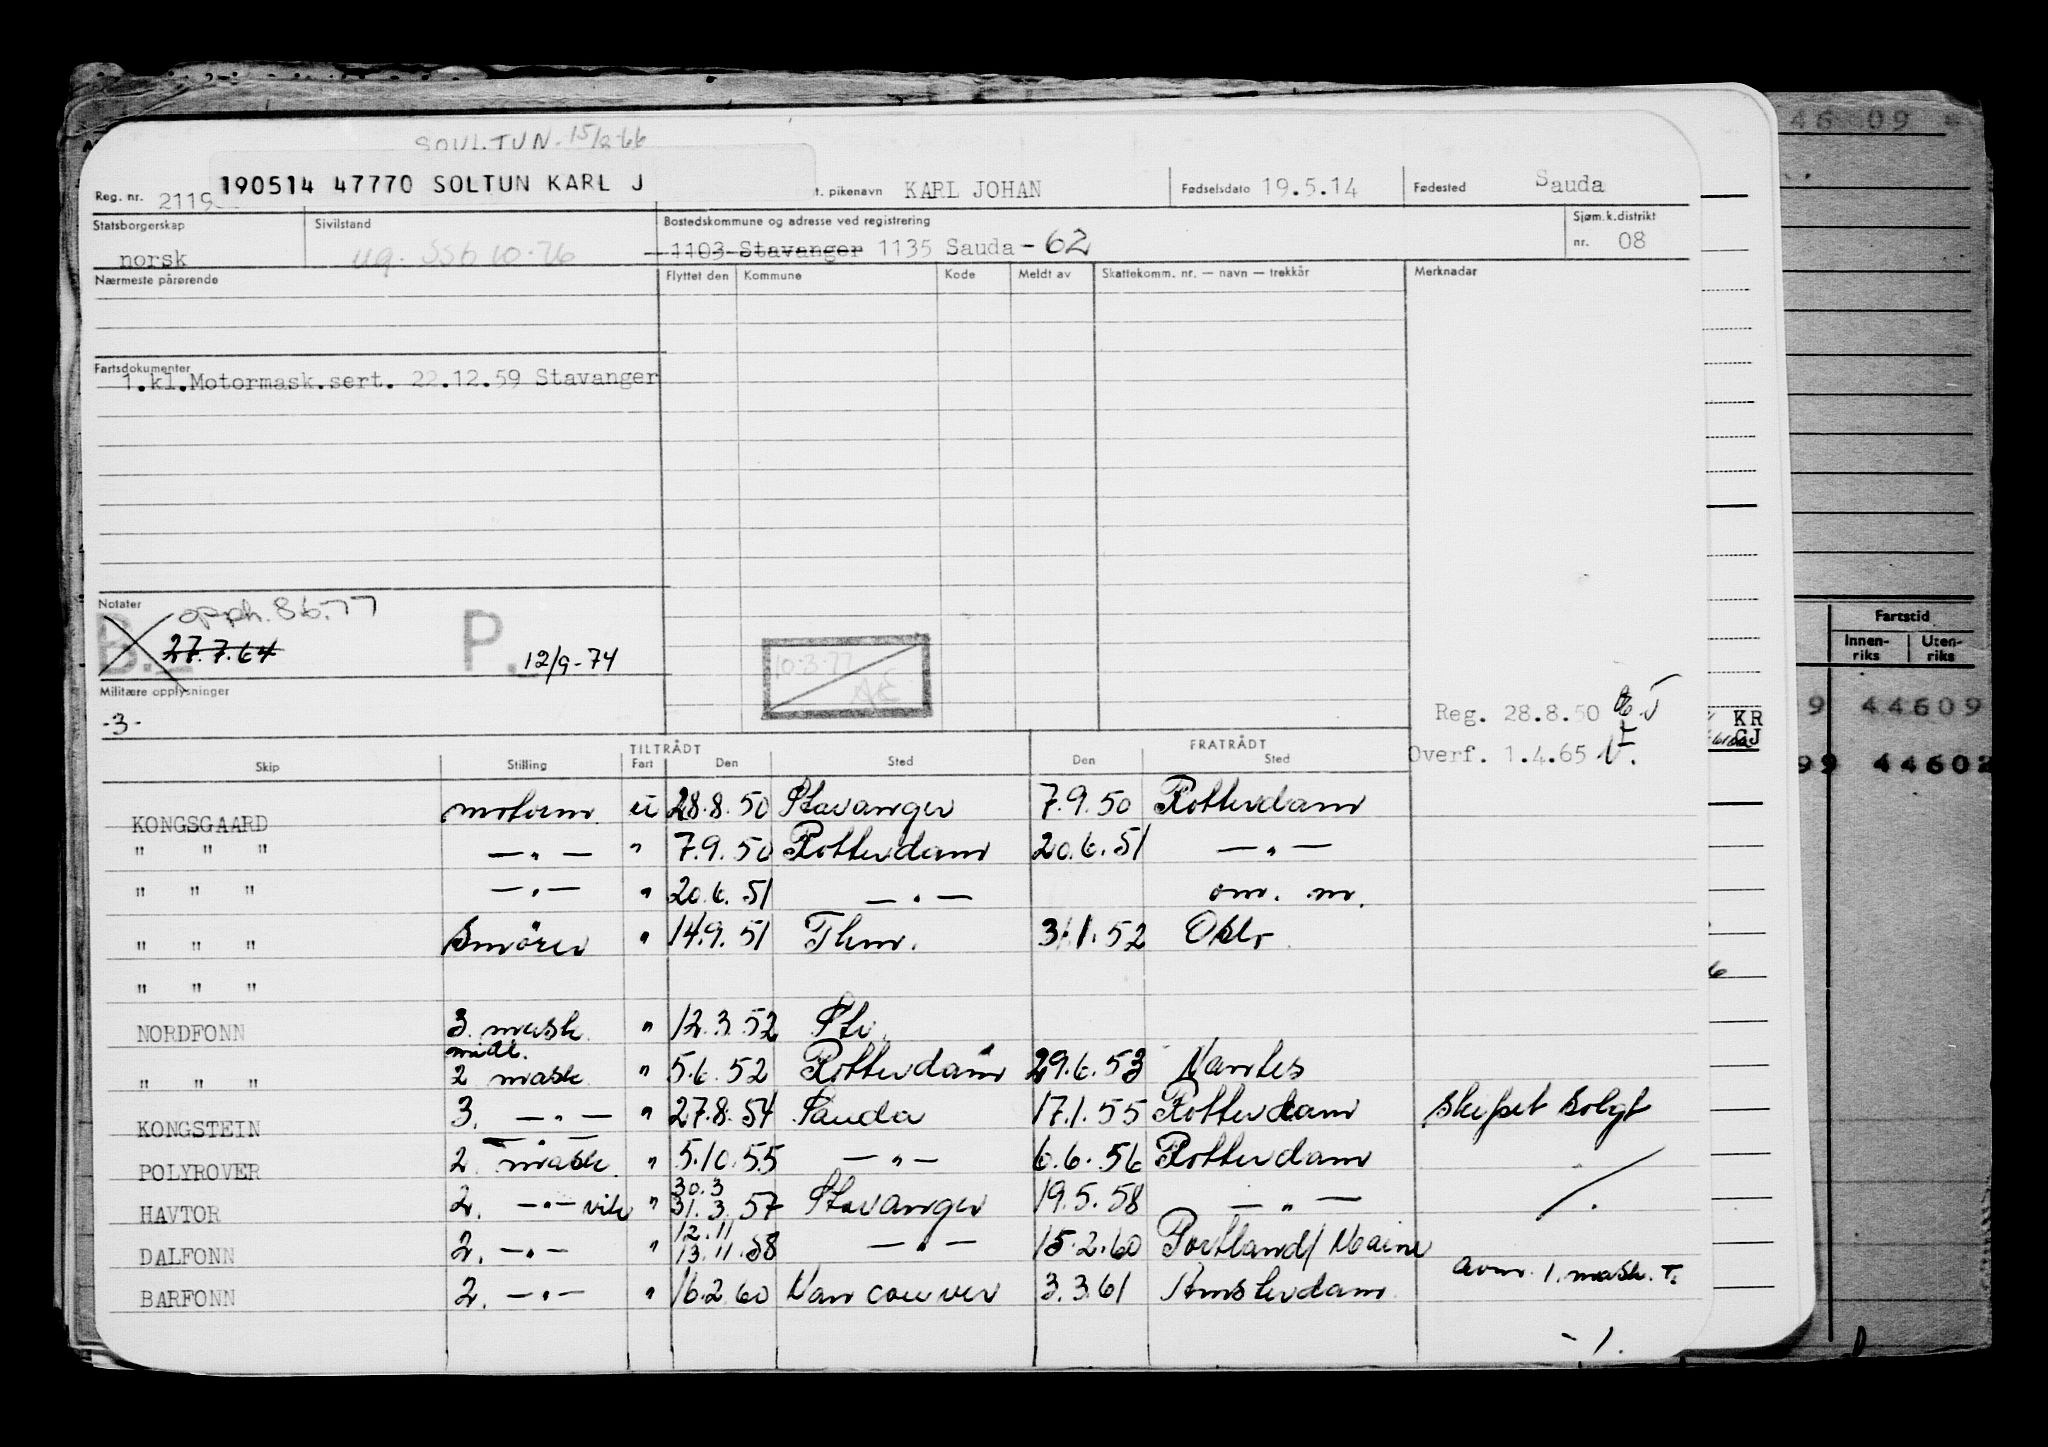 SOULTUN. 15/2-66
46 09
Reg. nr. 2119 190514 47770 SOLTUN KARL J t. pikenavn KARL JOHAN Fødselsdato 19.5.14 Fødested Sauda
Statsborgerskap Sivilstand Bostedskommune og adresse ved registrering Sjøm.k.distrikt
norsk ug. SSB 10-76 1103 Stavanger 1135 Sauda - 62 nr. 08
Nærmeste pårørende Flyttet den Kommune Kode Meldt av Skattekomm. nr. — navn — trekkår Merknader
Fartsdokumenter
1.kl.Motormask.sert. 22.12.59 Stavanger
Notater opph. 8.6.77
B. 27.7.64 P. 12/9-74 10-3-77 AE
Militære opplysninger
-3-
Reg. 28.8.50
Overf. 1.4.65
Fartstid
Innen-riks Uten-riks
9 44609
KR
GJ
99 44602
TILTRÅDT FRATRÅDT
Skip Stilling Fart Den Sted Den Sted
KONGSGAARD motorm. u 28.8.50 Stavanger 7.9.50 Rotterdam
" " " — " — " 7.9.50 Rotterdam 20.6.51 — " —
" " " — " — " 20.6.51 — " — om. m.
" " " Smörer " 14.9.51 Thm. 31.1.52 Oslo
" " "
NORDFONN 3. mask. " 12.3.52 Stv.
midl.
" " " 2 mask. " 5.6.52 Rotterdam 29.6.53 Nantes
KONGSTEIN 3. — " — " 27.8.54 Sauda 17.1.55 Rotterdam Skipet solgt
— " —
POLYROVER 2. mask. " 5.10.55 — " — 6.6.56 Rotterdam
30.3
HAVTOR 2. — " — vik " 31.3.57 Stavanger 19.5.58 — " —
12.11
DALFONN 2. — " — " 13.11.58 — " — 15.2.60 Portland/Maine
BARFONN 2. — " — " 16.2.60 Vancouver 3.3.61 Amsterdam avm. 1. mask. T.
- 1.